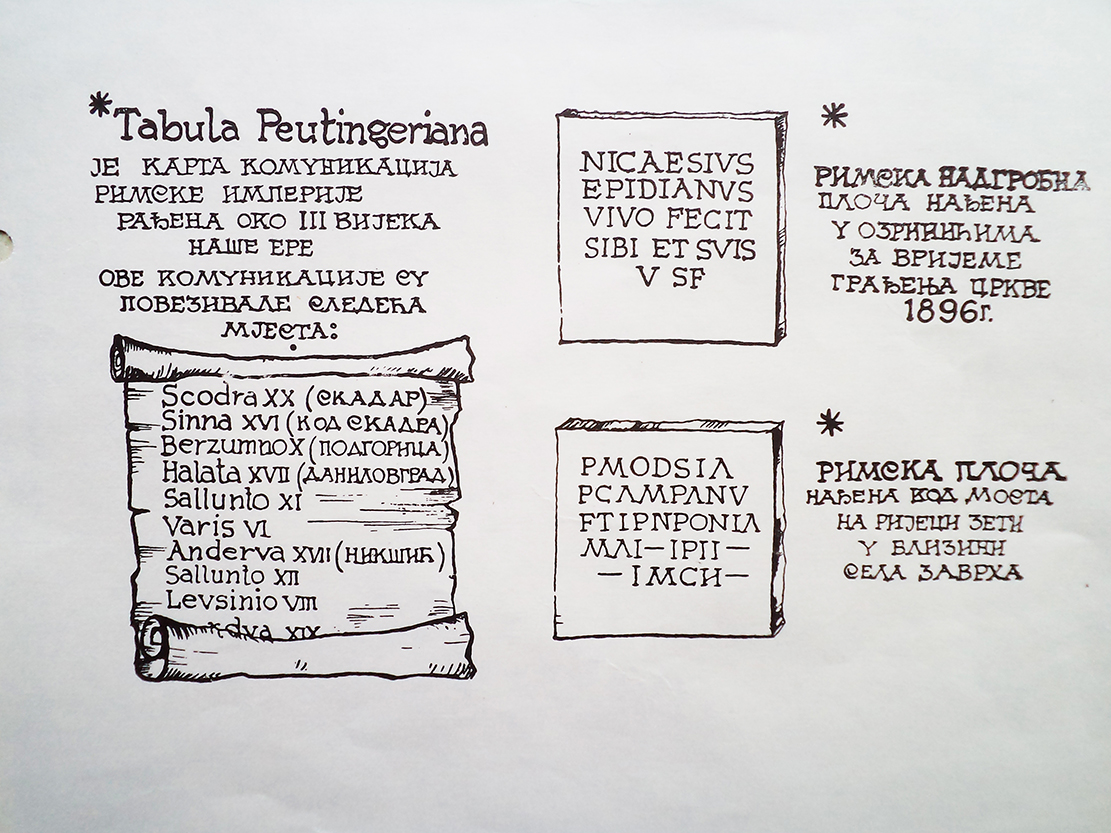 *Tabula Peutingeriana
ЈЕ КАРТА КОМУНИКАЦИЈА
РИМСКЕ ИМПЕРИЈЕ
РАЂЕНА ОКО III ВИЈЕКА
НАШЕ ЕРЕ
ОВЕ КОМУНИКАЦИЈЕ СУ
ПОВЕЗИВАЛЕ СЛЕДЕЋА
МЈЕСТА:
Scodra XX (СКАДАР)
Sinna XVI (КОД СКАДРА)
Berzumno X (ПОДГОРИЦА)
Halata XVII (ДАНИЛОВГРАД)
Sallunto XI
Varis VI
Anderva XVII (НИКШИЋ)
Sallunto XII
Levsinio VIII
XIX
NICAESIVS
EPIDIANVS
VIVO FECIT
SIBI ET SVIS
V SF
*
РИМСКА НАДГРОБНА
ПЛОЧА НАЂЕНА
У ОЗРИНИЋИМА
ЗА ВРИЈЕМЕ
ГРАЂЕЊА ЦРКВЕ
1896г.
PMODSIA
PCAMPANV
FTIPNPONIA
MAI—IPII—
—IMCH—
*
РИМСКА ПЛОЧА
НАЂЕНА КОД МОСТА
НА РИЈЕЦИ ЗЕТИ
У БЛИЗИНИ
СЕЛА ЗАВРХА